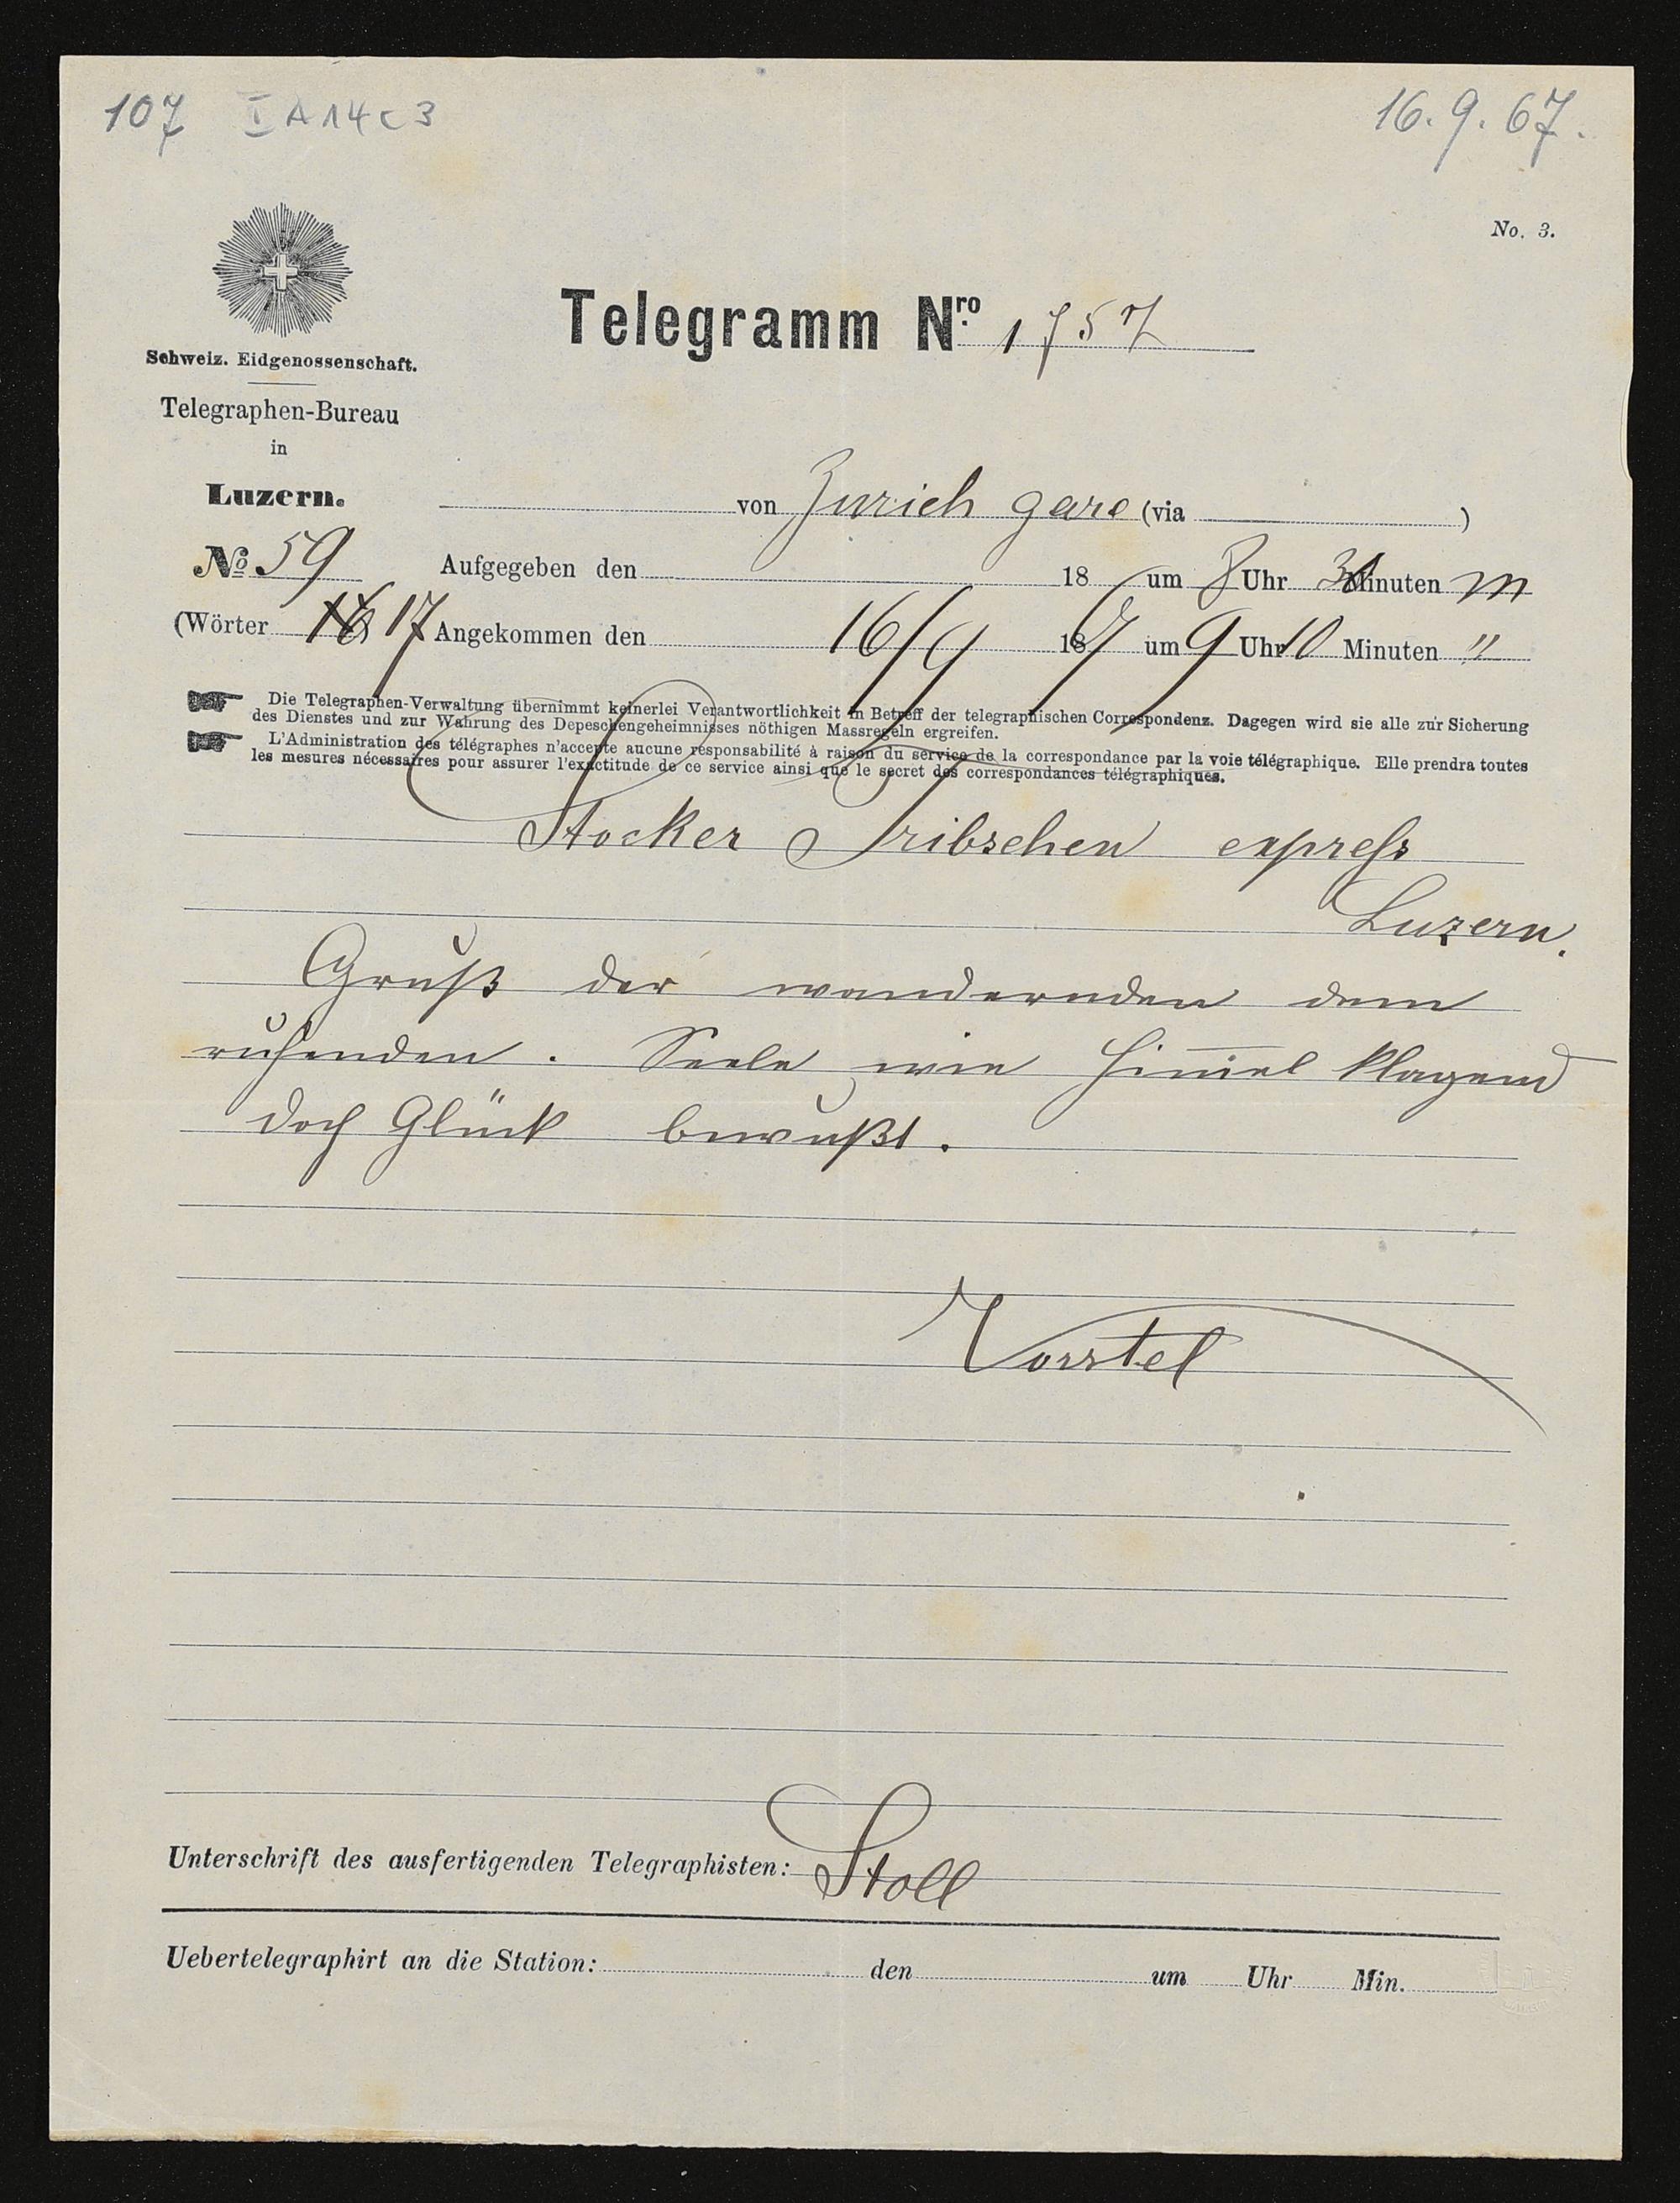 107 I A 14 c 3
16. 9. 67.
No. 3.
Telegramm Nro. 1757
Schweiz. Eidgenossenschaft.
Telegraphen-Bureau
in
Luzern.
von Zurich gare (via )
No 59 Aufgegeben den 18 um 8 Uhr Minuten m
(Wörter 16 17 Angekommen den 16/9 187 um 9 Uhr 10 Minuten "
Die Telegraphen-Verwaltung übernimmt keinerlei Verantwortlichkeit in Betreff der telegraphischen Correspondenz. Dagegen wird sie alle zur Sicherung
des Dienstes und zur Wahrung des Depeschengeheimnisses nöthigen Massregeln ergreifen.
L'Administration des télégraphes n'accepte aucune responsabilité à raison du service de la correspondance par la voie télégraphique. Elle prendra toutes
les mesures nécessaires pour assurer l'exactitude de ce service ainsi que le secret des correspondances télégraphiques.
Stocker Tribschen express
Luzern.
Gruß der wandernden dem
ruhenden. Seele wie Him̅el klagend
doch Glück bewußt.
Vorstel
Unterschrift des ausfertigenden Telegraphisten: Stoll
Uebertelegraphirt an die Station: den um Uhr Min.